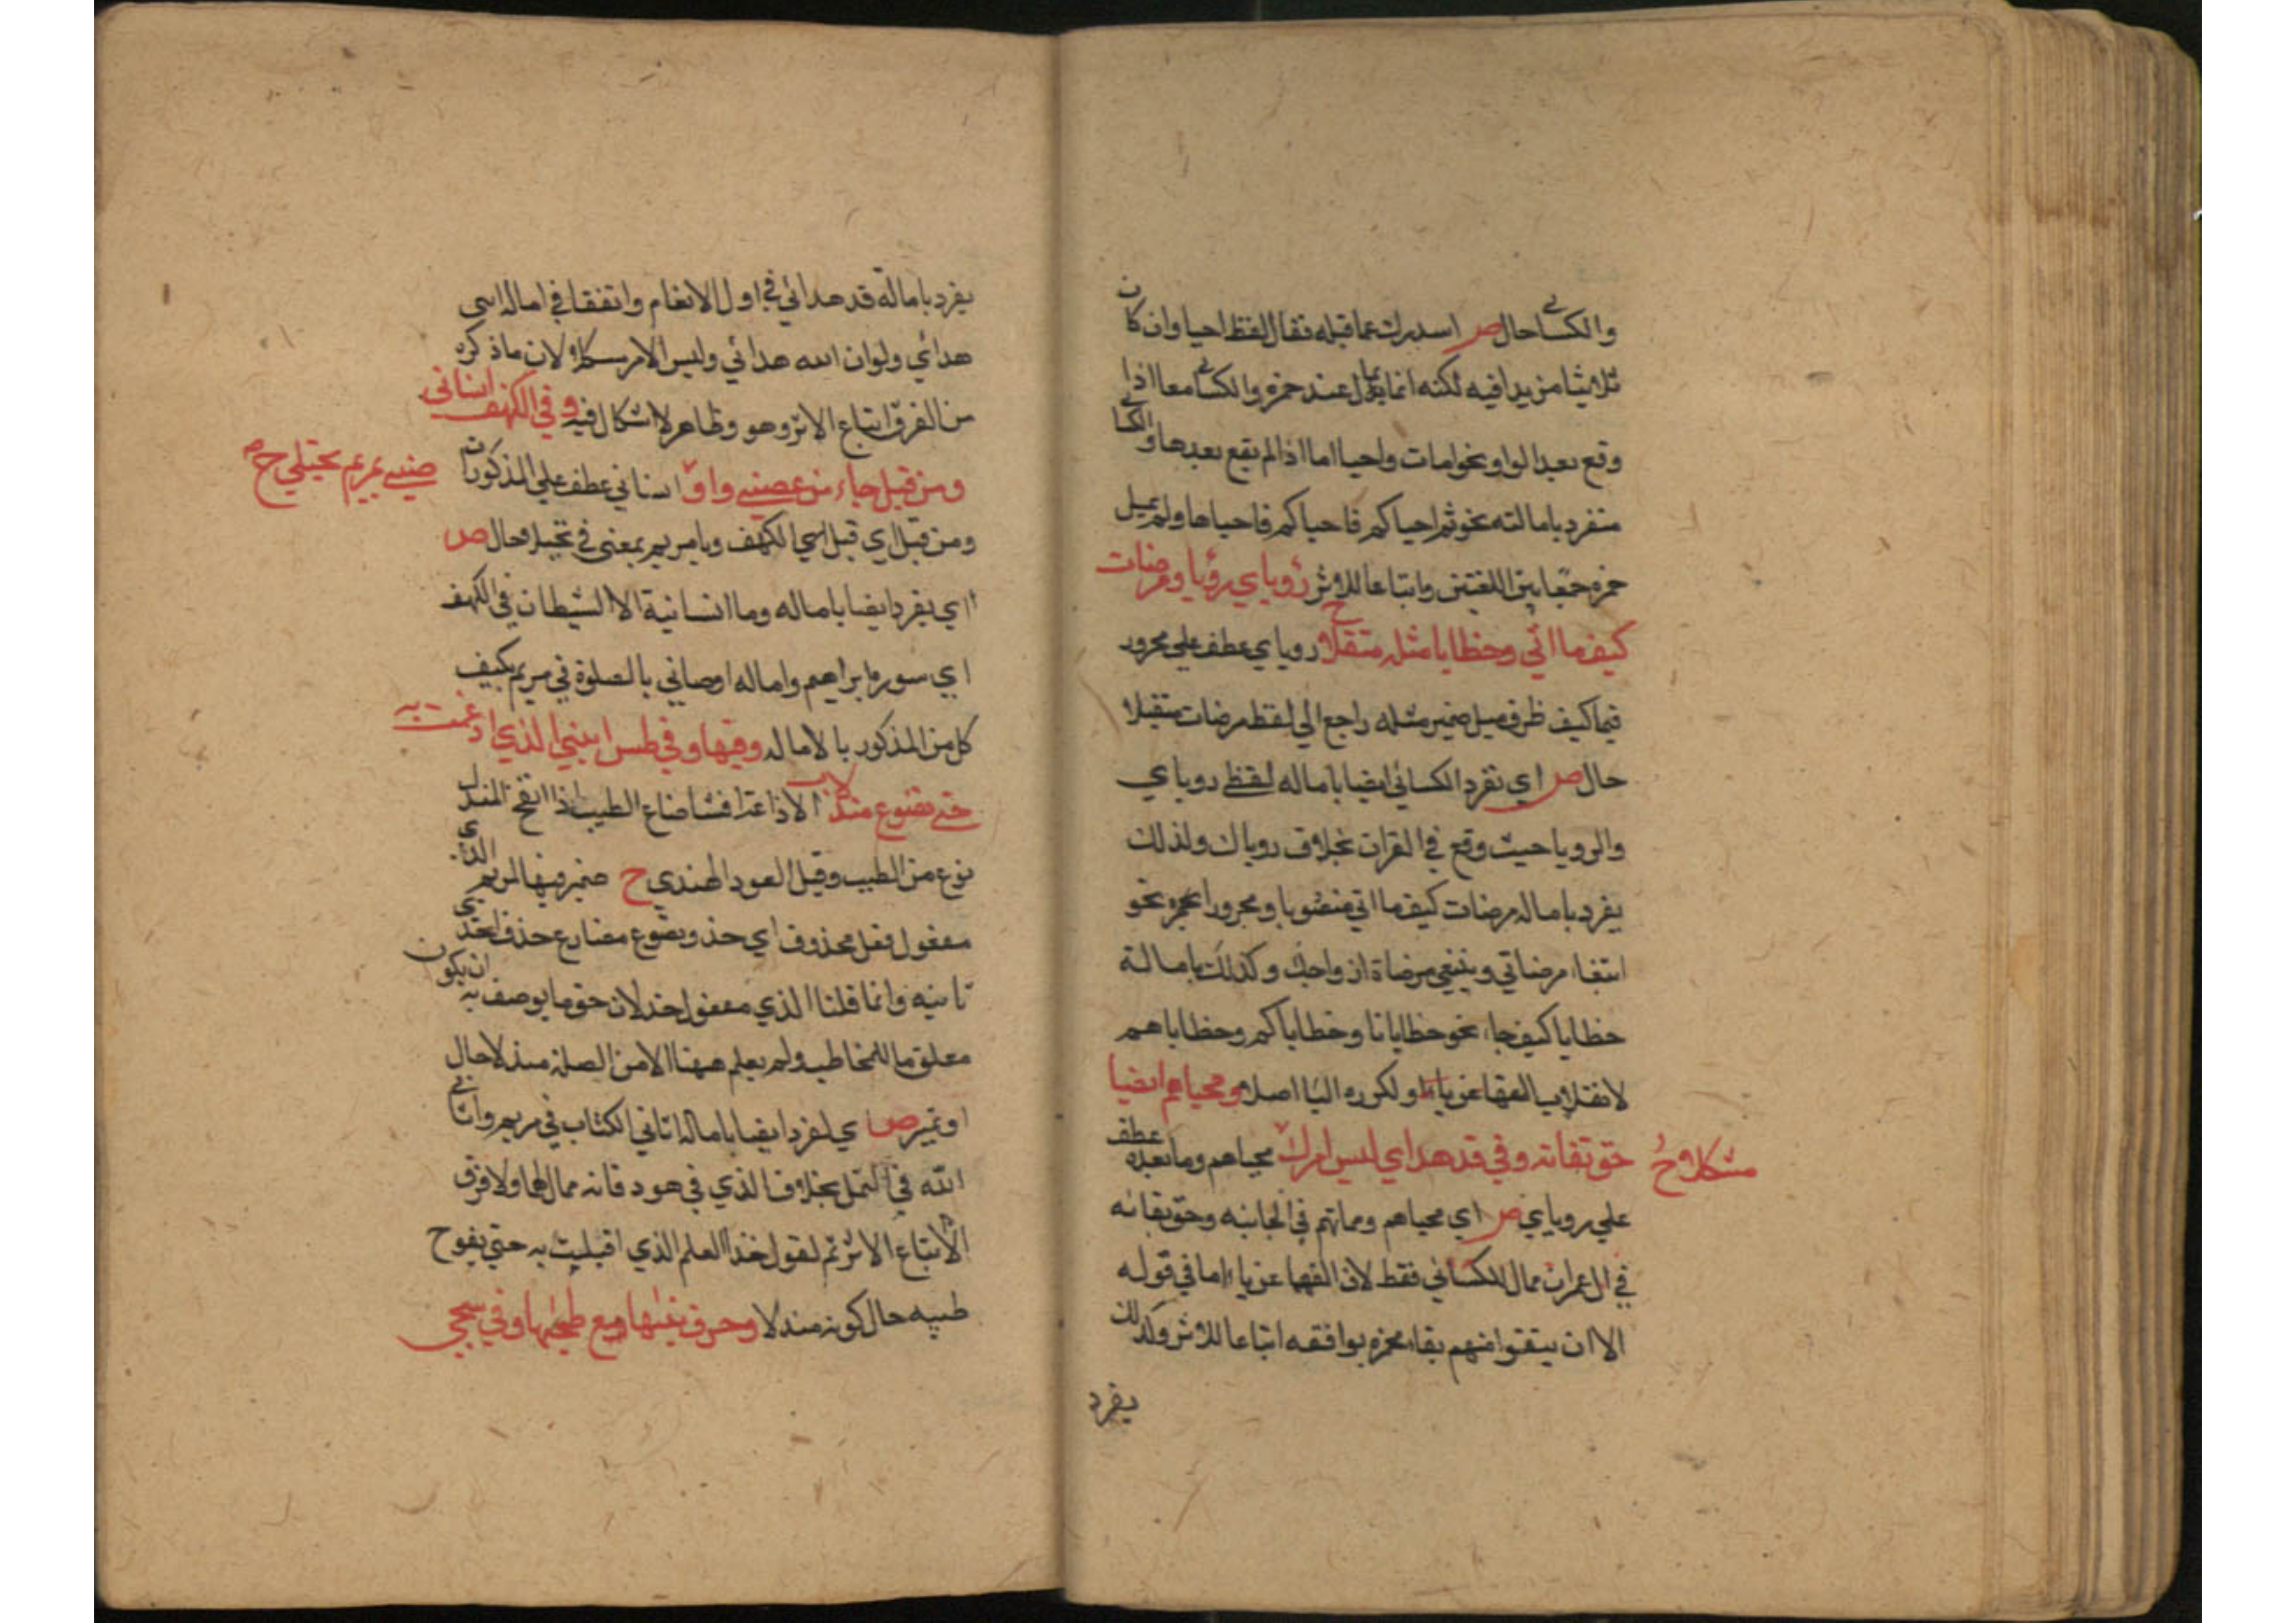 والكسائي حال ص اسدرك عما قبله فقال لفظ احيا وان كان
ثلاثيا مزيدا فيه لكنه انما يمال عند حمزه والكسائي معا اذا
وقع بعد الواو نحو امات واحيا اما اذا لم يقع بعدها والكسا
منفرد بامالته نحو ثم احياكم فاحياكم فاحياها ولم يميل
حمزه جمعا بين اللغتين واتباعا للاثر رؤياي رؤيا ومرضات
كيف ما اتى وخطايا مثله متقبلا ح روياي عطف علي مجرور
فيما كيف ظرف ميل ضمير مثله راجع الي لفظ مرضات متقبلا
حال ص اي تفرد الكسائي ايضا باماله لفظ روياي
والرويا حيث وقع في القران بخلاف روياك ولذلك
يفرد باماله مرضات كيف ما اتي منصوبا ومجرورا نحو
ابتغاء مرضاتي وتبتغي مرضاة ازواجك وكذلك بامالة
خطايا كيف جاء نحو خطايانا وخطاياكم وخطاياهم
لانقلاب الفها عن ياء ولكون اليا اصلا ومحياهم ايضا
حق تقاته وفي قد هداي ليس امرك مشكلا ح محياهم وما بعده عطف
علي روياي ص اي محياهم ومماتهم في الجاثيه وحق تقاته
في ال عمران ممال للكسائي فقط لان الفها عن ياء اما في قوله
الا ان يتقوا منهم تقاه حمزه يوافقه اتباعا للاثر وكذلك
يفرد
يفرد بامالة قد هدائي في اول الانعام واتفقا في اماله اسى
هدائي ولوان الله هدائي وليس الامر مشكلا لان ما ذكره
من الفرق اتباع الاثر وهو وظاهر لا اشكال فيه وفي الكهف انساني
ومن قبل جاء من عصاني واو صاني بمريم يجتلي ح ص انساني عطف علي المذكوران
ومن قبل اي قبل اسي الكهف وبا مريم بمعنى في يجتلا حال ص
اي يفرد ايضا باماله وما انسانية الا الشيطان في الكهف
اي سوره ابراهيم واماله اوصاني بالصلوة في مريم كيف
كل من المذكور بالاماله وفيها وفي طس اتني الذي اذعت به
حتى تضوع مندلا الاذاعة افشا ضاع الطيب اذا انفح المندل
نوع من الطيب وقيل العود الهندي ح ضمير فيها لمريم الذي
مفعول فعل محذوف اي خذ وتضوع مضارع حذف احدى
ثانيه وانما قلنا الذي مفعول خذ لان حق ما يوصف به ان يكون
معلوما للمخاطب ولم يعلم ههنا الا من الصله مندلا حال
او تميز ص اي يفرد ايضا باماله اتاني الكتاب في مريم واتاني
الله في النمل بخلاف الذي في هود فانه ممال لهما ولا فرق
الا اتباع الاثر ثم نقول خذ العلم الذي اقبليت به حتى يفوح
طيبه حال كونه مندلا وحرف تليها مع طحيها وفي سجى